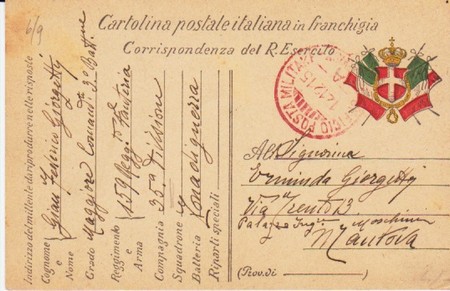 6/9
Cartolina postale italiana in franchigia
Corrispondenza del R. Esercito
UFFICIO POSTA MILITARE
14.12.15
A
Indirizzo del mittente da riprodurre nelle risposte
Cognome e Nome
Giorgetti
Grado Maggiore Comand. 3° Batt.
Reggimento e Arma 159° Regg. Fanteria
Compagnia 35a Divisione
Squadrone
Batteria Zona di guerra
Riparti speciali
Signorina
Erminda Giorgetti
Via Trento 13
Palazzo
Mantova
(Prov. di )